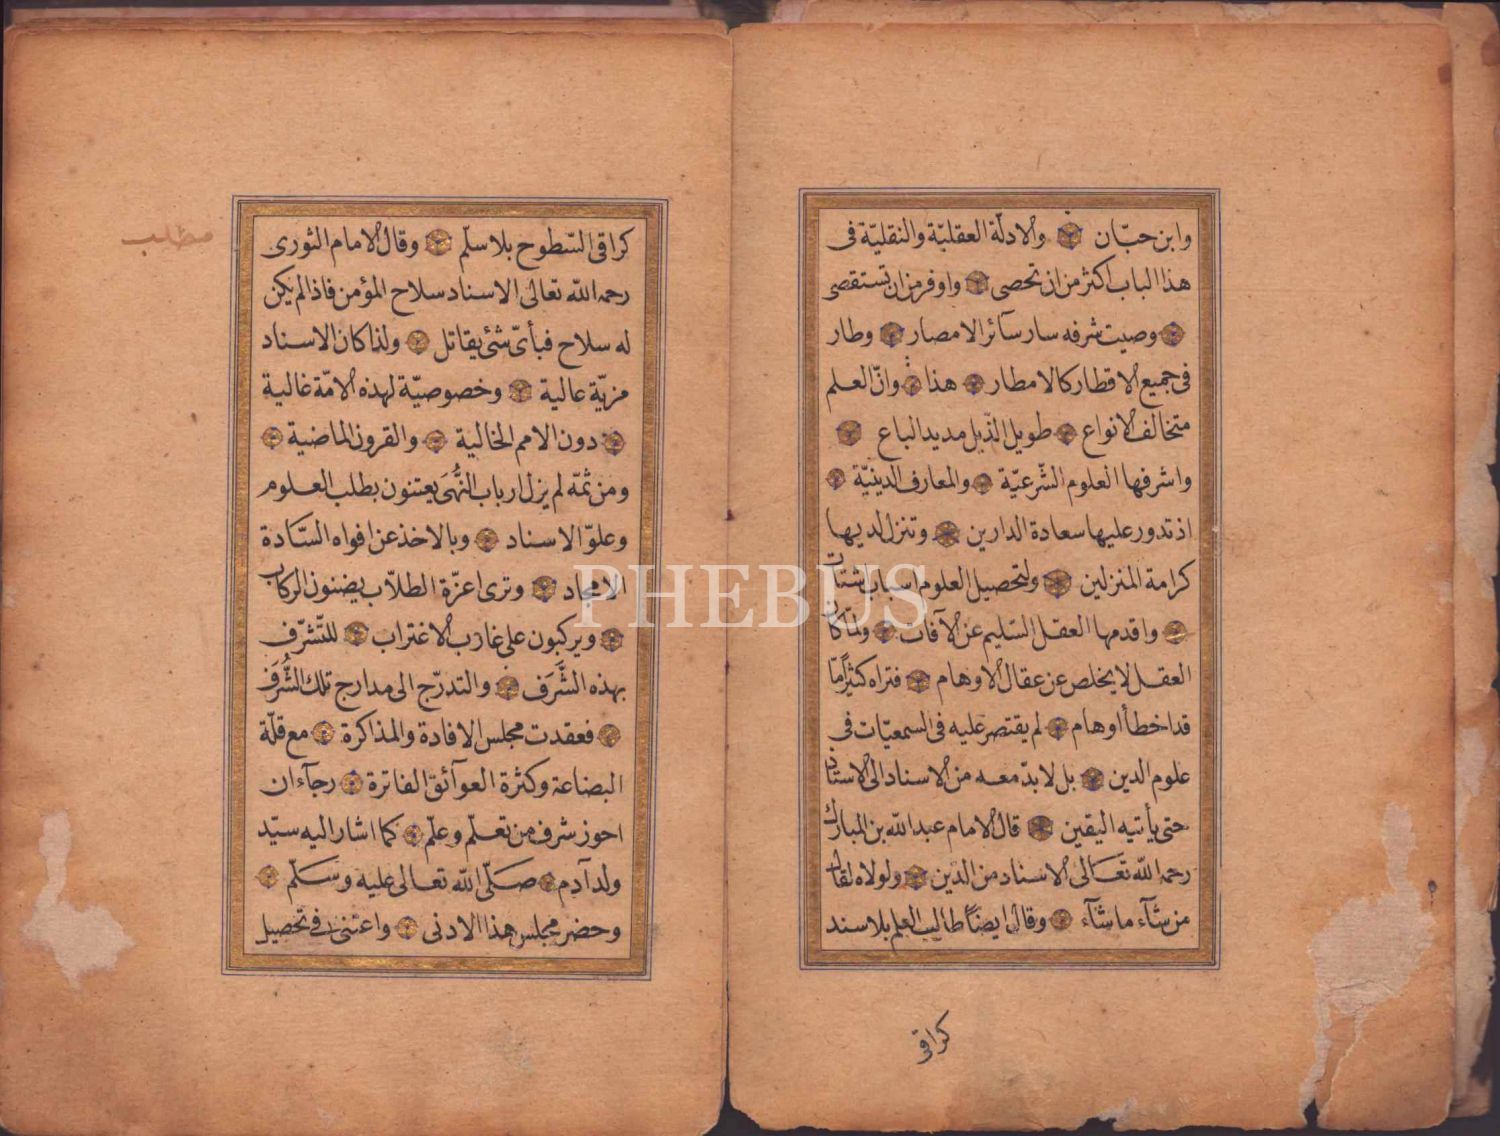 وابن حبّان والادلّة العقليّة والنقليّة فى
هذا الباب اكثر من ان تحصى واوفر من ان تستقصى
وصيت شرفه سار سآئر الامصار وطار
فى جميع الاقطار كالامطار هذا وانّ العلم
متخالف الانواع طويل الذّيل مديد الباع
واشرفها العلوم الشّرعيّة والمعارف الدينيّة
اذ تدور عليها سعادة الدارين وتنزل لديها
كرامة المنزلين ولتحصيل العلوم اسباب شتات
واقدمها العقل السّليم عن الآفات ولمّا كان
العقل لا يخلص عن عقال الاوهام فتراه كثيرًا مّا
قد اخطأ اوهام لم يقتصر عليه فى السمعيّات فى
علوم الدين بل لابدّ معه من الاسناد الى الاستاذ
حتى يأتيه اليقين قال الامام عبد الله بن المبارك
رحمه الله تعالى الاسناد من الدّين ولولاه لقال
من شآء ما شآء وقال ايضًا طالب العلم بلا سند
كراقى
مطلب
كراقى السّطوح بلا سلّم وقال الامام الثورى
رحمه الله تعالى الاسناد سلاح المؤمن فاذا لم يكن
له سلاح فبأىّ شئ يقاتل ولذا كان الاسناد
مزيّة عالية وخصوصيّة لهذه الامّة غالية
دون الامم الخالية والقرون الماضية
ومن ثمّه لم يزل ارباب النُّهَى يعتنون بطلب العلوم
وعلوّ الاسناد وبالاخذ عن افواه السّادة
الامجاد وترى اعزّة الطلاّب يضنون الركاب
ويركبون على غارب الاغتراب للتّشرّف
بهذه الشَّرَف والتدرّج الى مدارج تلك الشُّرَف
فعقدت مجلس الافادة والمذاكرة مع قلّة
البضاعة وكثرة العوآئق الفاترة رجآء ان
احوز شرف من تعلّم وعلّم كما اشار اليه سيّد
ولد آدم صلّى الله تعالى عليه وسلّم
وحضر مجلس هذا الادنى واعتنى فى تحصيل
PHEBUS